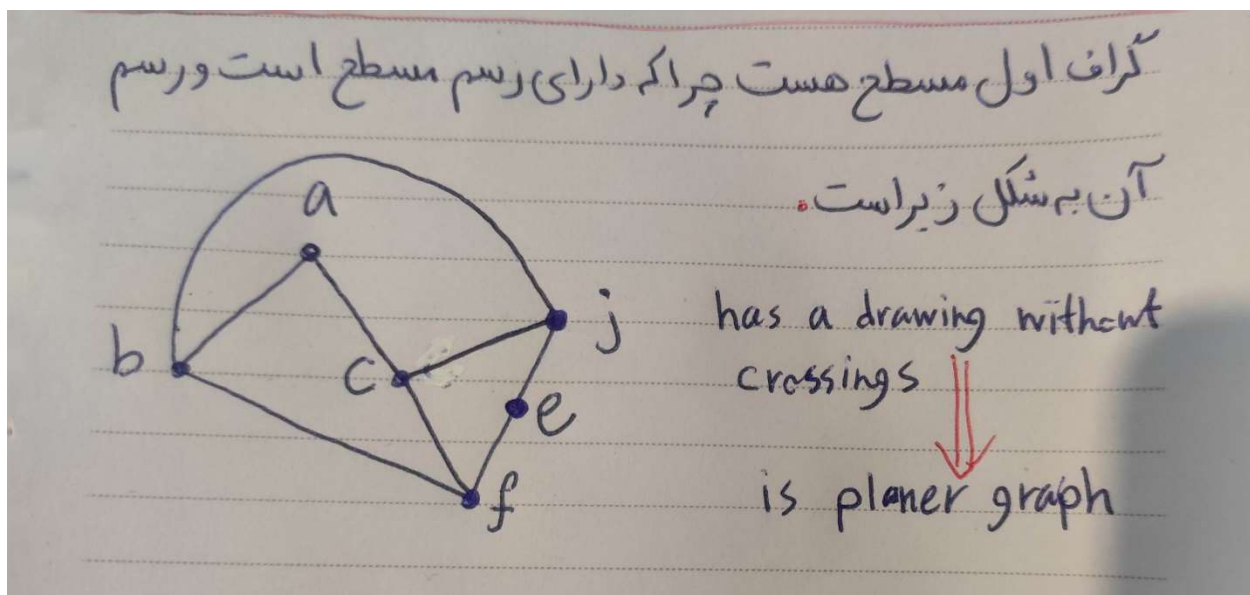 گراف اول مسطح هست چرا که دارای رسم مسطح است و رسم
آن به شکل زیر است.
a
b
c
j
e
f
has a drawing without
crossings
is planer graph